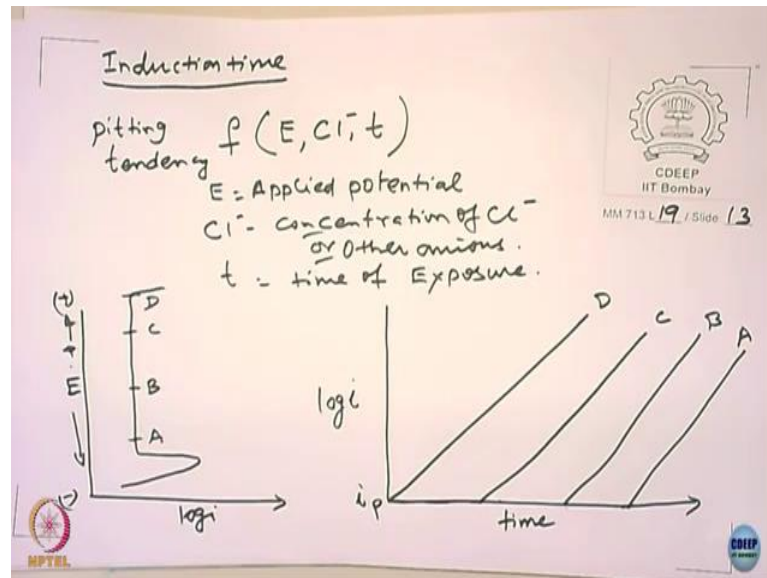 Induction time
pitting
tendency f (E, Cl⁻, t)
E = Applied potential
Cl⁻ - concentration of Cl⁻
or Other anions.
t - time of Exposure.
CDEEP
IIT Bombay
MM 713 L 19 / Slide 13
(+)
E
(-)
D
C
B
A
log i
log i
ip
time
D
C
B
A
NPTEL
CDEEP
IIT BOMBAY